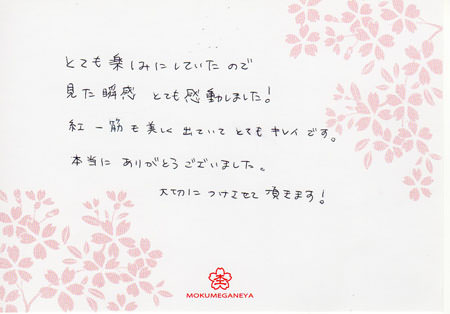 とても楽しみにしていたので
見た瞬感 とても感動しました!
紅一筋も美しく出ていてとてもキレイです。
本当に ありがとうございました。
大切につけさせて頂きます!
杢
MOKUMEGANEYA